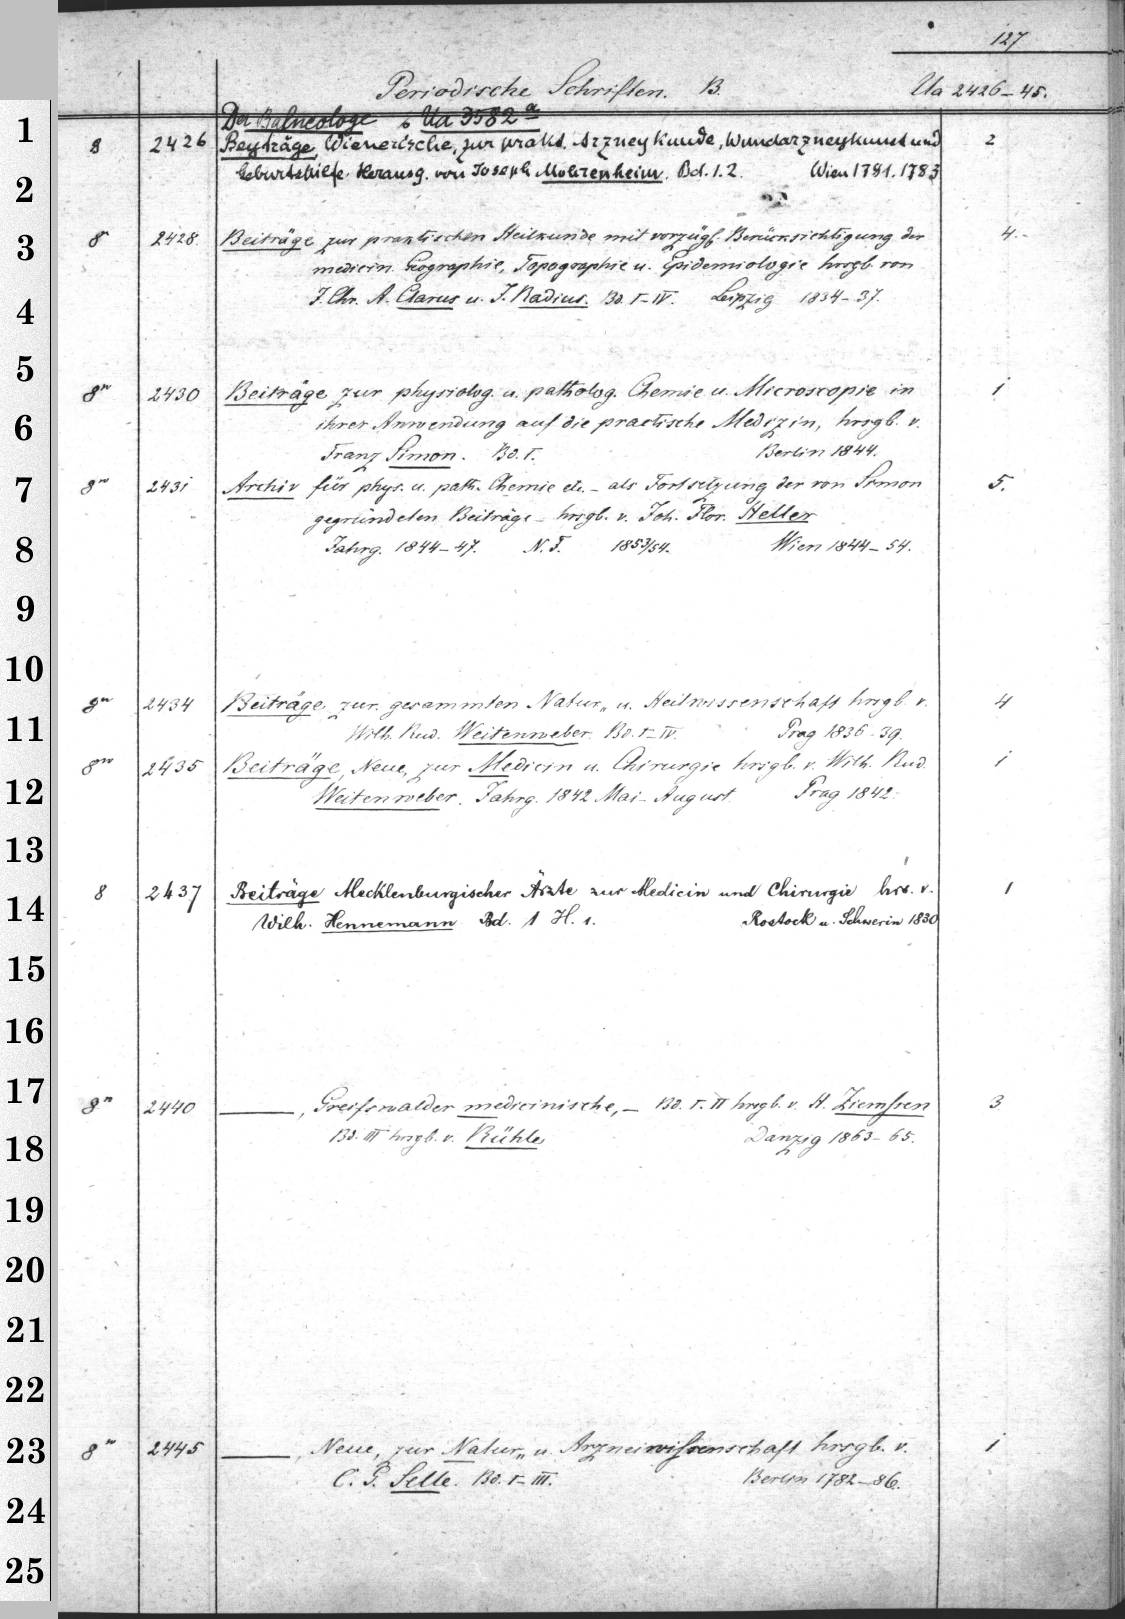 127
Periodische Schriften. B. Ua 2426-45.
Der Balneologe s. Ua 3582a
1
8 2426 Beyträge, Wienerische, zur prakt. Arzneykunde, Wundarzneykunst und 2
Geburtshilfe. Herausg. von Joseph Mohrenheim. Bd. 1. 2. Wien 1781. 1783
2
3
8° 2428. Beiträge zur praktischen Heilkunde mit vorzügl. Berücksichtigung der 4.
medicin. Geographie, Topographie u. Epidemiologie hrsgb. von
J. Chr. A. Clarus u. J. Radius. Bd. I-IV. Leipzig 1834-37.
4
5
8° 2430 Beiträge zur physiolog. u. patholog. Chemie u. Microscopie in 1
6
ihrer Anwendung auf die practische Medizin, hrsgb. v.
Franz Simon. Bd. I. Berlin 1844.
7
8° 2431 Archiv für phys. u. path. Chemie etc. - als Fortsetzung der von Simon 5.
gegründeten Beiträge - hrsgb. v. Joh. Flor. Heller
8
Jahrg. 1844-47. N. F. 1853/54. Wien 1844-54.
9
10
8° 2434 Beiträge zur gesammten Natur„ u. Heilwissenschaft hrsgb. v. 4
11
Wilh. Rud. Weitenweber. Bd. I-IV. Prag 1836-39.
8° 2435 Beiträge, Neue, zur Medicin u. Chirurgie hrsgb. v. Wilh. Rud. 1
12
Weitenweber. Jahrg. 1842 Mai-August. Prag 1842.
13
8 2437 Beiträge Mecklenburgischer Ärzte zur Medicin und Chirurgie hrs. v. 1
14
Wilh. Hennemann Bd. 1 H. 1. Rostock u. Schwerin 1830
15
16
17
8° 2440 ——, Greifswalder medicinische, - Bd. I. II hrsgb. v. H. Ziemssen 3
Bd. III hrsgb. v. Rühle Danzig 1863-65.
18
19
20
21
22
23
8° 2445 ——, Neue, zur Natur„ u. Arzneiwissenschaft hrsgb. v. 1
C. G. Selle. Bd. I-III. Berlin 1782-86.
24
25